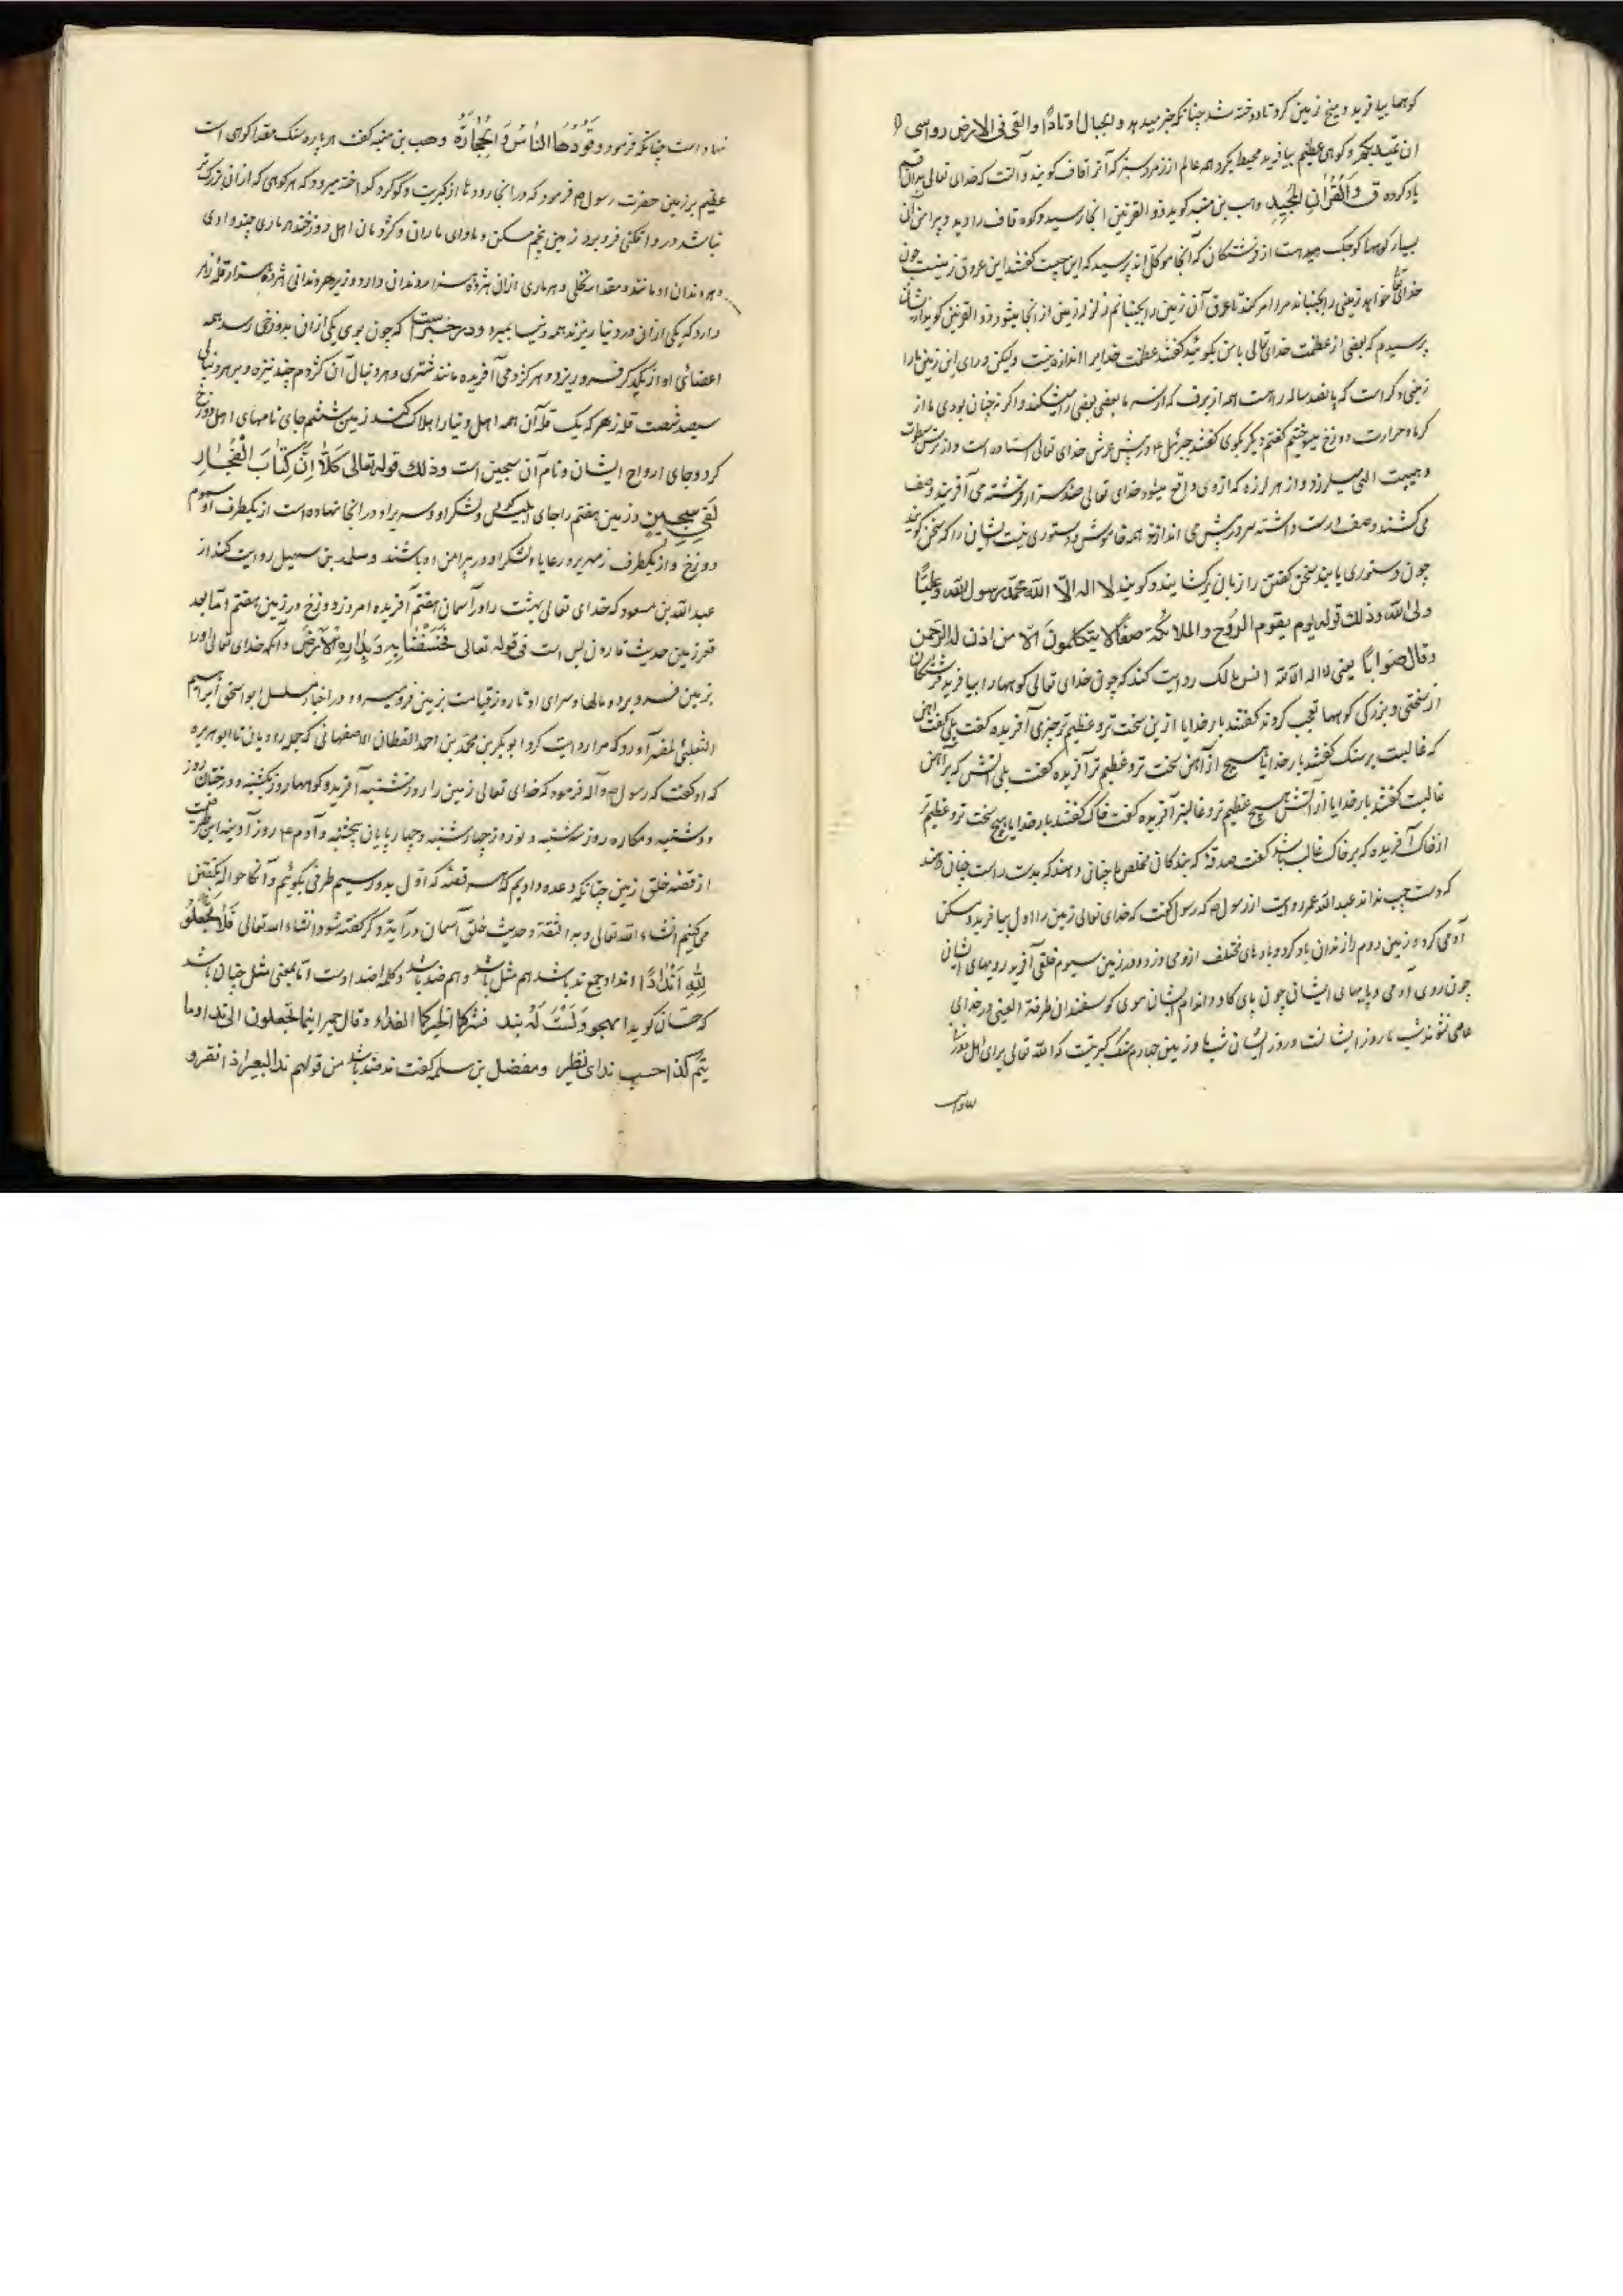 کوهها بیافرید و میخ زمین کرد تا دوخته شد چنانکه خبر میدهد والجبال اوتادًا والقی فی الارض رواسی
ان تمید بکم و کوهی عظیم بیافرید محیط بکرد همه عالم از زمرد سبز که آنرا قاف کویند و آنست که خدای تعالی بدان قسم
یاد کرده ق وَالْقُرْآنِ الْمَجِیدِ وهب بن منبه کوید ذو القرنین انجا رسید و کوه قاف را دید و پیرامن آن
بسیار کوهها کوچک دید از فرشتکان که آنجا موکل اند پرسید که این چیست کفتند این عروق زمینست چون
خدای تعالی خواهد زمینی را بجنباند مرا امر کند تا عروق آن زمین را بجنبانم زلزله زمین از انجا میشود ذو القرنین کوید از ایشان
پرسیدم که بعضی از عظمت خدای تعالی با من بکوئید کفتند عظمت خدایرا اندازه نیست ولیکن ورای این زمین ما را
زمینی دکر است که پانصد ساله راهست همه از برف که از سرما بعضی بعضی را میشکند و اکر نه چنان بودی ما از
کرما و حرارت دوزخ میسوختیم کفتم دیکر بکوی کفتند جبرئیل ع در پیش عرش خدای تعالی استاده است و از ترس سطوت
و هیبت الهی میلرزد و از هر لرزه که از وی واقع میشود خدای تعالی صد هزار فرشته می آفریند و صف
می کشند و صف راست داشته سر در پیش می اندازند همه خاموش و دستوری نیست ایشان را که سخن کویند
چون دستوری یابند سخن کفتن را زبان برکشایند و کویند لا اله الّا الله محمّد رسول الله و علیًّا
ولی الله و ذلک قوله یوم یقوم الرّوح والملائکة صفًّا لا یتکلمون الّا من اذن له الرّحمن
وقال صوابًا یعنی لا اله الا الله انس مالک روایت کند که چون خدای تعالی کوهها را بیافرید فرشتکان
از سختی و بزرکی کوهها تعجب کردند کفتند بار خدایا ازین سخت تر و عظیم تر چیزی آفریده کفت بلی کفت آهن
که غالبست بر سنک کفتند بار خدایا هیچ از آهن سخت تر و عظیم تر آفریده کفت بلی آتش که بر آهن
غالبست کفتند بار خدایا از آتش هیچ عظیم تر و غالبتر آفریده کفت خاک کفتند بار خدایا هیچ سخت تر و عظیم تر
از خاک آفریده که بر خاک غالب باشد کفت صدقهٔ که بندکان مخلص ما چنان دهند که بدست راست چنان دهند
که دست چپ نداند عبد الله عمر روایت از رسول ص که رسول کفت که خدای تعالی زمین را اول بیافرید و مسکن
آدمی کرد و زمین دوم را زندان باد کرد و بادهای مختلف ازو می وزد و در زمین سیوم خلقی آفرید رویهای ایشان
چون روی آدمی و پایهای ایشان چون پای کاو و اندام ایشان موی کوسفندان طرفة العینی در خدای
عاصی نشوند شب ما روز ایشانست و روز ایشان شب ما و زمین چهارم سنک کبریتست که الله تعالی برای اهل دوزخ
نهاده است چنانکه فرمود وَقُودُهَا النّاسُ وَالْحِجَارَةُ وهب بن منبه کفت هر پاره سنک مقدار کوهی است
عظیم بر زمین حضرت رسول ص فرمود که در انجا رودها از کبریت و کوکرد کداخته میرود که هر کوهی که از ان بزرکتر
نباشد در وافکنی فرو برد زمین پنجم مسکن و ماوای ماران و کژدمان اهل دوزخند هر ماری چند وادی
و هر دندان او مانند و مقدار نخلی و هر ماری از ان هژده هزار دندان دارد و زیر هر دندانی هژده هزار قله زهر
دارد که یکی از ان در دنیا ریزند همه دنیا بمیرد و در خبر است که چون بوی یکی از ان بدوزخی رسد همه
اعضائی او از یکدیکر فرو ریزد و هر کژدمی آفریده مانند شتری و هر دنبال آن کژدم چند نیزه و بر هر دنبالی
سیصد شصت قله زهر که یک قله آن همه اهل دنیا را هلاک کند زمین ششم جای نامهای اهل دوزخ
کرد و جای ارواح ایشان و نام آن سجین است و ذلک قوله تعالی کَلَّا اِنَّ کِتَابَ الْفُجَّارِ
لَفِی سِجِّینٍ و زمین هفتم را جای ابلیس و لشکر او و سریر او در انجا نهاده است از یکطرف او سموم
دوزخ و از یکطرف زمهریر و رعایا و لشکر او در پیرامن او باشند و سلمة بن سهیل روایت کند از
عبد الله بن مسعود که خدای تعالی بهشت را در آسمان هفتم آفریده امروز و دوزخ در زمین هفتم اما بعد
قعر زمین حدیث قارون بس است فی قوله تعالی فَخَسَفْنَا بِهِ وَبِدَارِهِ الْاَرْضَ و آنکه خدای تعالی او را
بزمین فرو برد و مالها و سرای او تا روز قیامت بزمین فرو میرود و در اخبار مسلسل ابو اسحق ابراهیم
الثعلبی المفسر آورد که مرا روایت کرد ابو بکر بن محمد بن احمد القطان الاصفهانی که جمله راویان تا ابو هریره
که او کفت که رسول ص و آله فرمود که خدای تعالی زمین را روز شنبه آفرید و کوهها روز یکشنبه و درختان روز
دوشنبه و مکاره روز سه شنبه و نور روز چهارشنبه و چهارپایان پنجشنبه و آدم ع روز آدینه این طرفیست
از قصه خلق زمین چنانکه وعده دادیم که هر قصه که اوّل بدو رسیم طرفی بکوئیم و آنکا حواله بکفتن
می کنیم انشاء الله تعالی و به الثقة و حدیث خلق آسمان در آیة دکر کفته شود انشاء الله تعالی فَلَا تَجْعَلُوا
لِلّٰهِ اَنْدَادًا انداد جمع ند باشد هم مثل باشد و هم ضد باشد و کلمه اضداد است امّا بمعنی مثل چنان باشد
که حسّان کوید اتهجوه وَلَسْتَ لَهُ بند فشرکما لخیرکما الفداء وقال جریر اتیما تجعلون الیّ ندا وما
یتم لذا حسب ندای نظیر و مفضل بن سلمه کفت ند ضد باشد من قولهم ند البعیر اذا نفر و